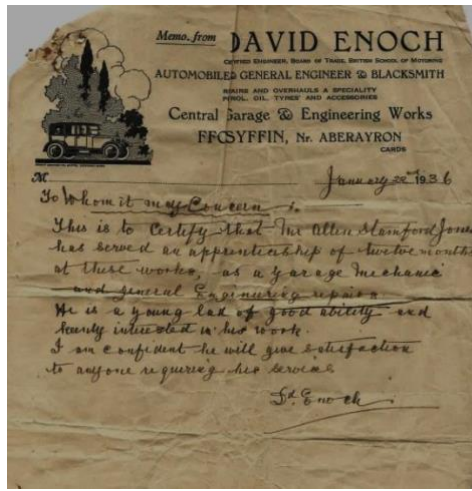 Memo. from DAVID ENOCH
CERTIFIED ENGINEER, BOARD OF TRADE, BRITISH SCHOOL OF MOTORING
AUTOMOBILE & GENERAL ENGINEER & BLACKSMITH
REPAIRS AND OVERHAULS A SPECIALITY
PETROL, OIL, TYRES AND ACCESSORIES
Central Garage & Engineering Works
FFOSYFFIN, Nr. ABERAYRON
CARDS
M
January 22nd 1936
To Whom it may Concern :
This is to Certify that Mr Allen Stamford Jones
has served an apprenticeship of twelve months
at these works, as a garage mechanic
and general Engineering repairs
He is a young lad of good ability and
keenly interested in his work.
I am confident he will give satisfaction
to anyone requiring his services
Enoch